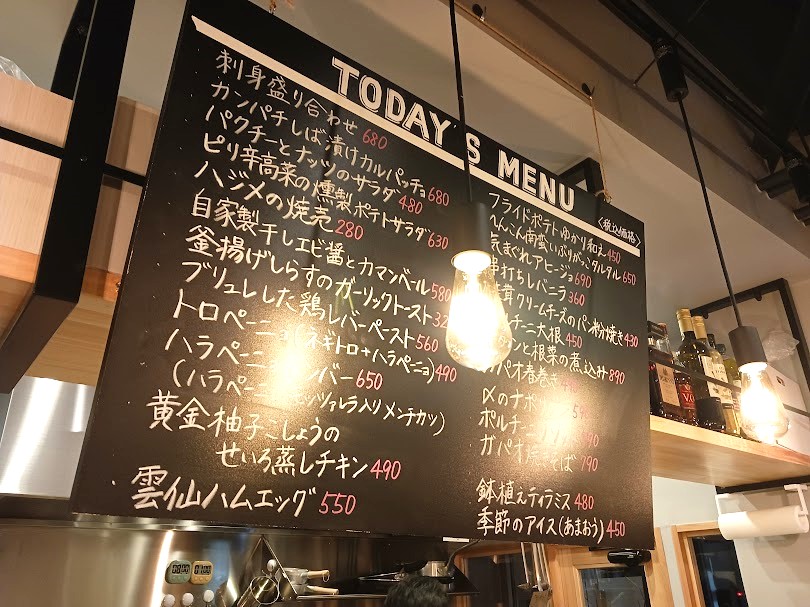 TODAY'S MENU
刺身盛り合わせ 680
カンパチしば漬けカルパッチョ 680
パクチーとナッツのサラダ 480
ピリ辛高菜の燻製ポテトサラダ 630
ハジメの焼売 280
自家製干しエビ醤とカマンベール 580
釜揚げしらすのガーリックトースト
ブリュレした鶏レバーペースト 560
トロペーニョ ネギトロ+ハラペーニョ) 490
ハラペーニ バー 650
(ハラペーニ ッツァレラ入りメンチカツ)
黄金柚子こしょうの
せいろ蒸しチキン 490
雲仙ハムエッグ 550
〈税込価格〉
フライドポテトゆかり和え 450
れんこん南蛮いぶりがっこタルタル 650
気まぐれアヒージョ 690
串打ちレバニラ 360
茸クリームチーズのパン粉焼き 430
チーニ大根 450
タンと根菜の煮込み 890
パオ春巻き
〆のナポ
ポルチーニ
ガパオ そば 790
鉢植えティラミス 480
季節のアイス(あまおう) 450